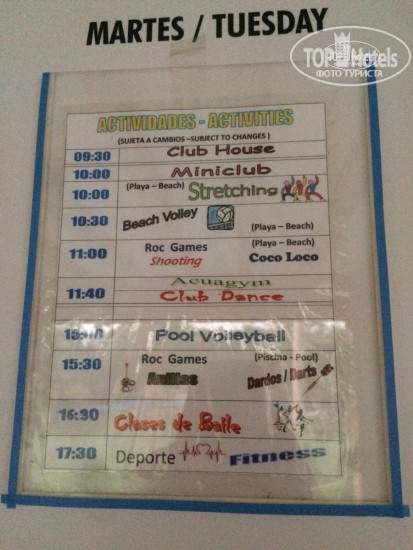 MARTES / TUESDAY
TOPHotels
ФОТО ТУРИСТА
ACTIVIDADES - ACTIVITIES
(SUJETA A CAMBIOS –SUBJECT TO CHANGES )
09:30 Club House
10:00 Miniclub
10:00 (Playa – Beach) Stretching
10:30 Beach Volley (Playa – Beach)
11:00 Roc Games (Playa – Beach)
Shooting Coco Loco
Acuagym
11:40 Club Dance
Pool Volleyball
15:30 Roc Games (Piscina - Pool)
Anillas Dardos / Darts
16:30 Clases de Baile
17:30 Deporte Fitness